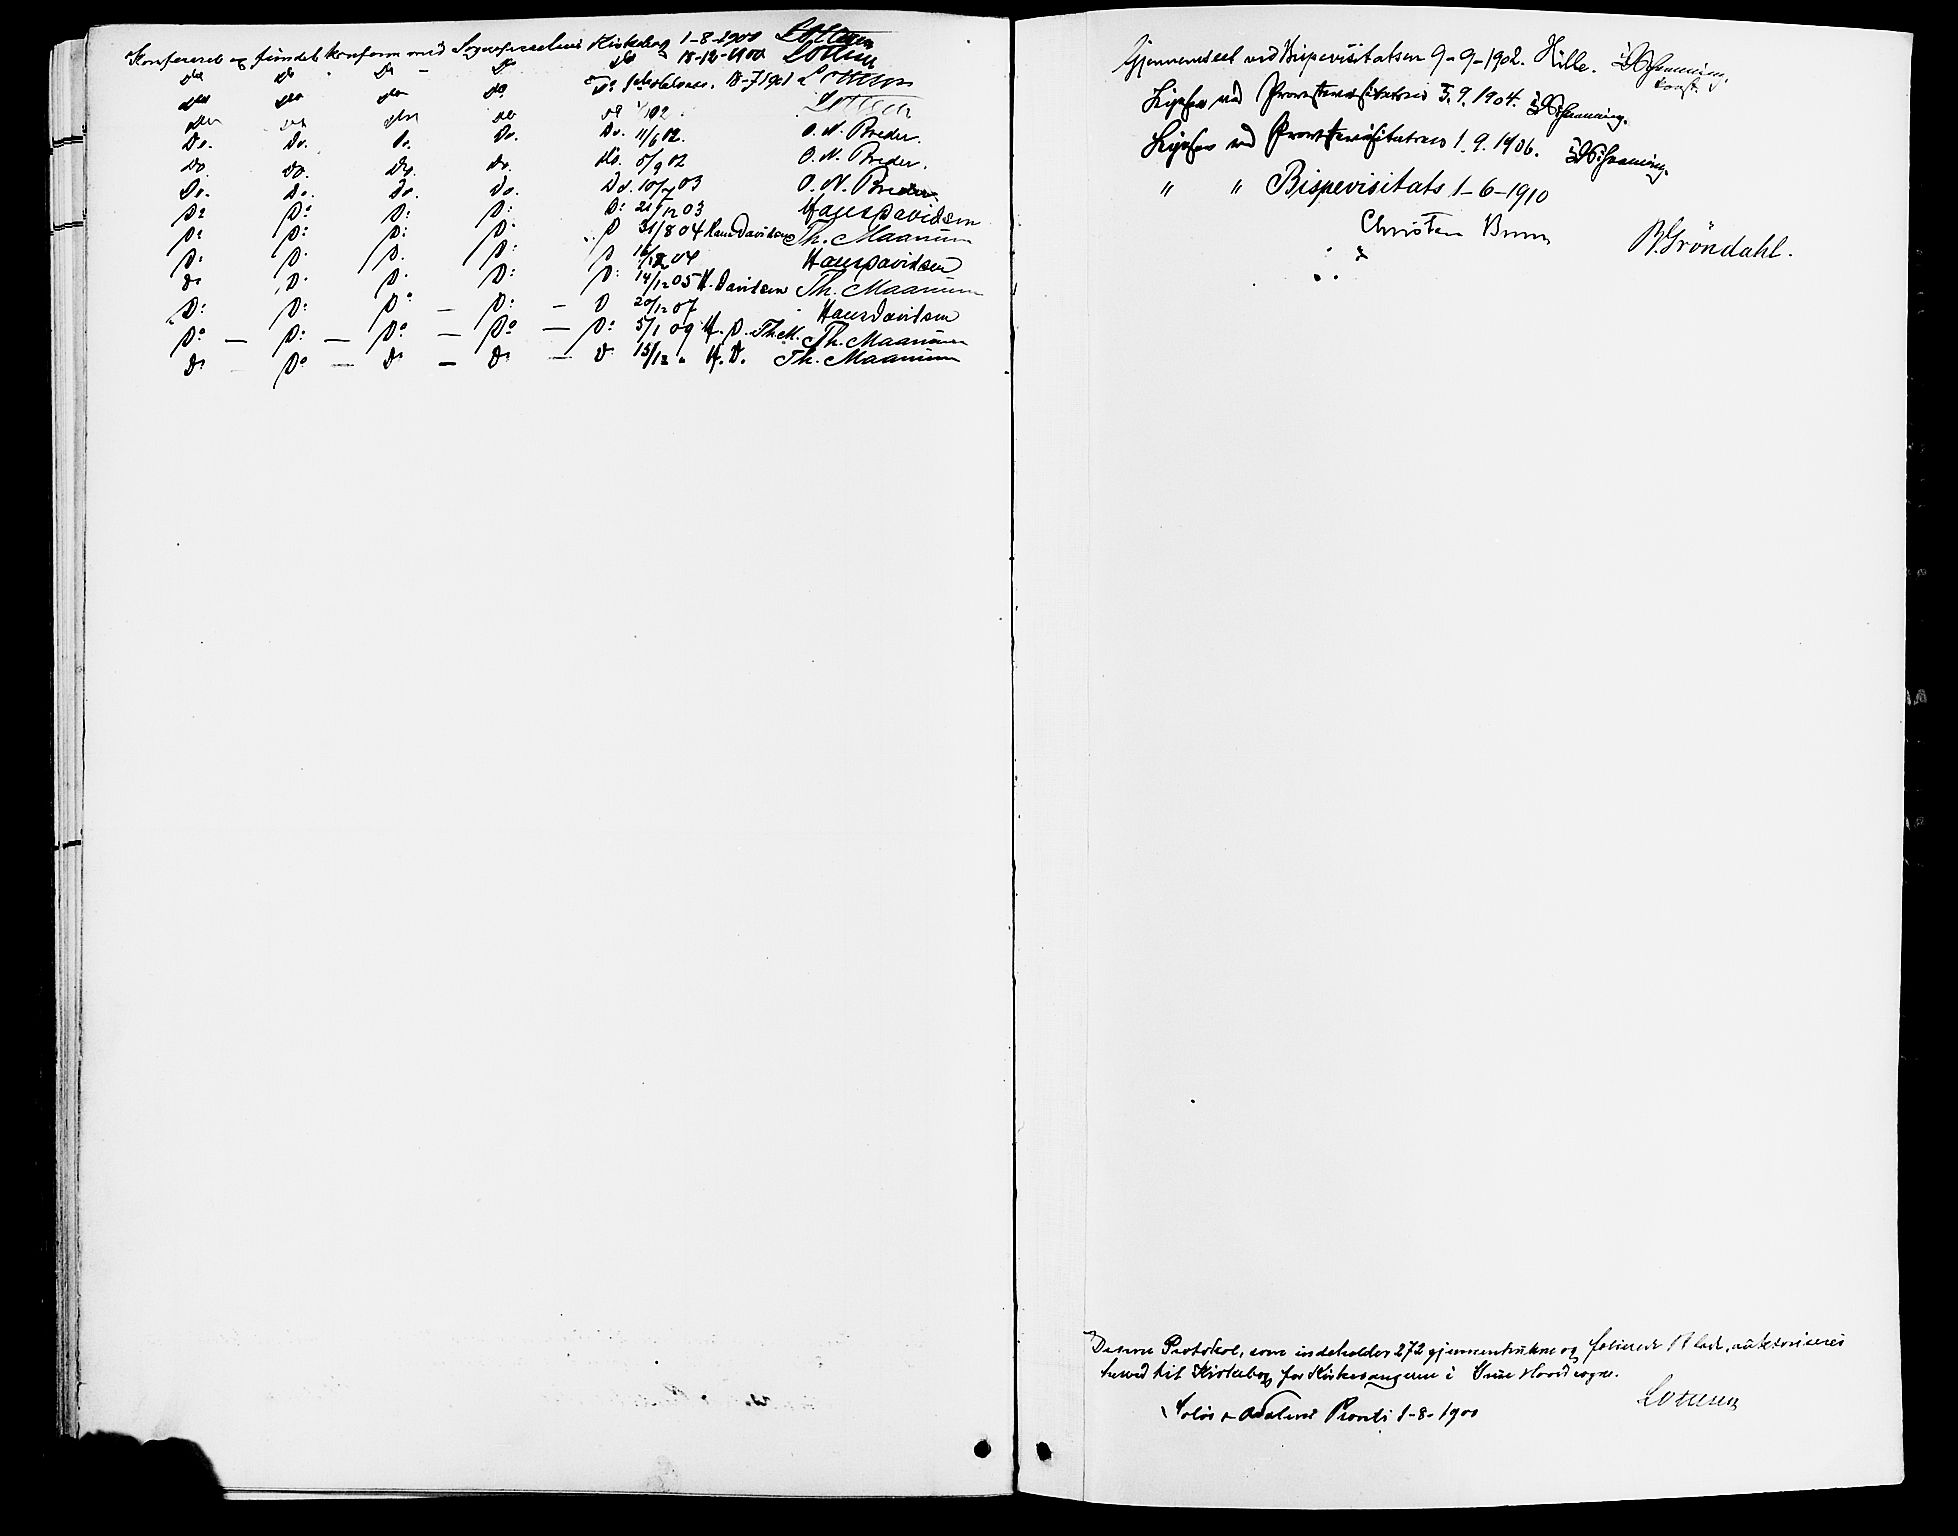 Konfereret og fundet konform med Sognepræstens Kirkebog 1-8-1900 Lottem
do do do do do 18-12-1900 Lottem
do do do do do 18-7 1901 Lottem
do do do do do 1/1 02 Lottem
Do. Do. Do. Do. Do. 11/6 02. O. N. Breder.
Do. Do. Do. Do. Do. 5/9 02 O. N. Breder.
Do. Do. Do. Do. Do. 10/7 03 O. N. Breder
Do Do Do: Do: Do: 21/12 03 Hans Davidsen
Do Do: Do: Do. Do 31/8 04 Hans Davidsen Th. Maanum
Do: Do: Do. Do: Do 16/12 04 Hans Davidsen
do Do: Do: Do: Do: 14/12 05 H. Davidsen Th. Maanum
Do: Do: Do — Do: — Do 20/12 07 Hans Davidsen
Do — Do: — Do — Do — Do: 5/1 09 H. D. Th. M. Th. Maanum
do — Do — do — do — do 15/12 " H. D. Th. Maanum
Gjennemseet ved Bispevisitatsen 9-9-1902. Hille.
Ligesaa ved Provstevisitatsen 3.9.1904.
Ligesaa ved Provstevisitatsen 1.9.1906.
" " Bispevisitats 1-6-1910
Christen Brun
B. Gröndahl.
Denne Protokol, som indeholder 272 gjennemtrukne og folierede Blade, autoriseres
herved til Kirkebog for Kirkesangeren i Hovedsogn.
Solør &amp; Odalens Provsti 1-8-1900
Lottem